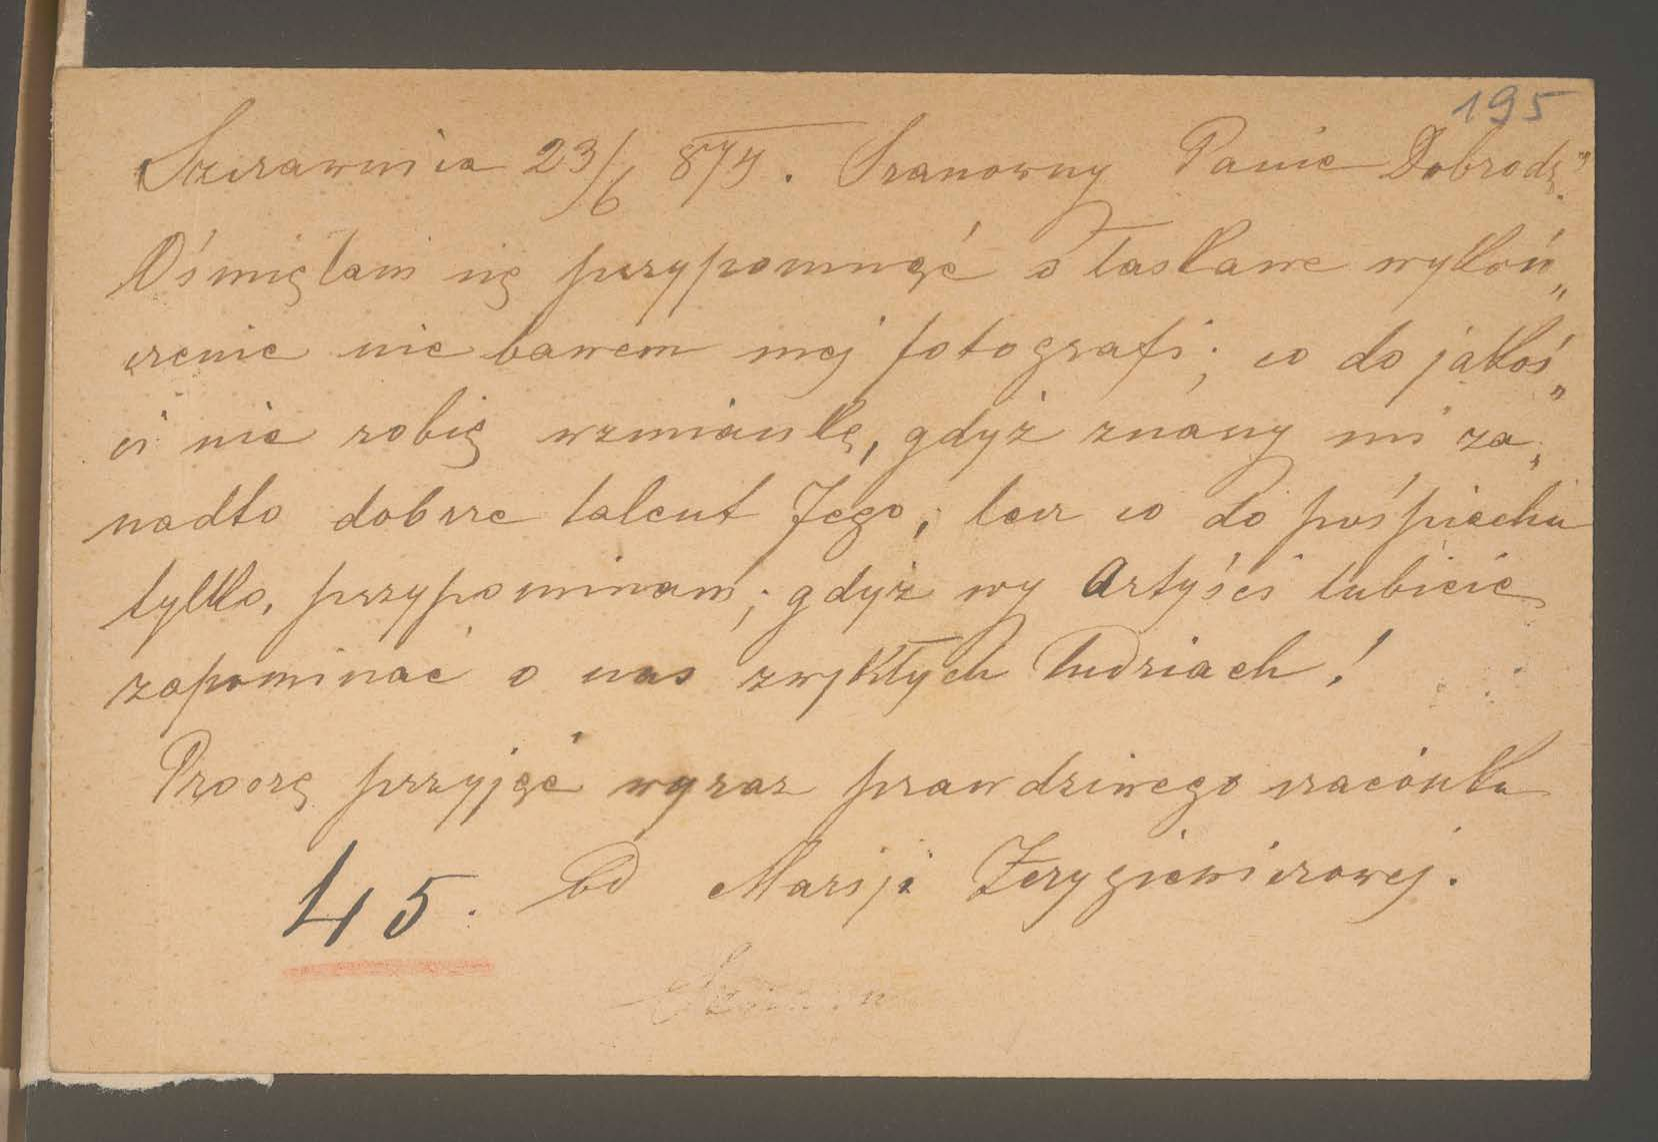 195
Szczawnica 23/6 874. Szanowny Panie Dobrodz„
Ośmielam się przypomnąć o łaskawe wykoń„
czenie nie bawem mej fotografi; co do jakoś„
ci nie robię wzmiankę, gdyż znany mi za„
nadto dobrze talent Jego, lecz co do pośpiechu
tylko, przypominam; gdyż wy Artyści lubicie
zapominać o nas zwykłych ludziach!
Proszę przyjąć wyraz prawdziwego szacunku
45. od Maryi Zerygiewiczowej.